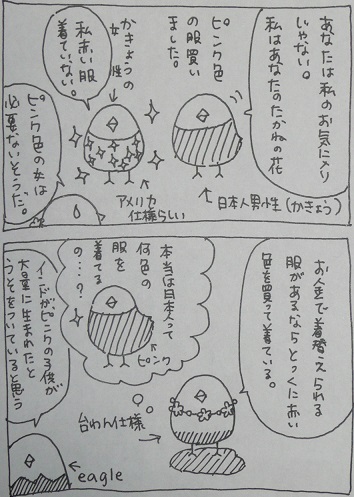 あなたは私のお気に入り
じゃない。
私はあなたのたかねの花
ピンク色
の服買い
ました。
かきょうの
女性
私赤い服
着ていない。
ピンク色の女は
必要ないそうだ。
アメリカ
仕様らしい
日本人男性(かきょう)
お金で着替えられる
服があるならとっくに赤い
色を買って着ている。
本当は日本人って
何色の
服を
着てる
の…?
ピンク
台わん仕様
インドが、ピンクの子供が
大量に生まれたと
うそをついていると思う
eagle